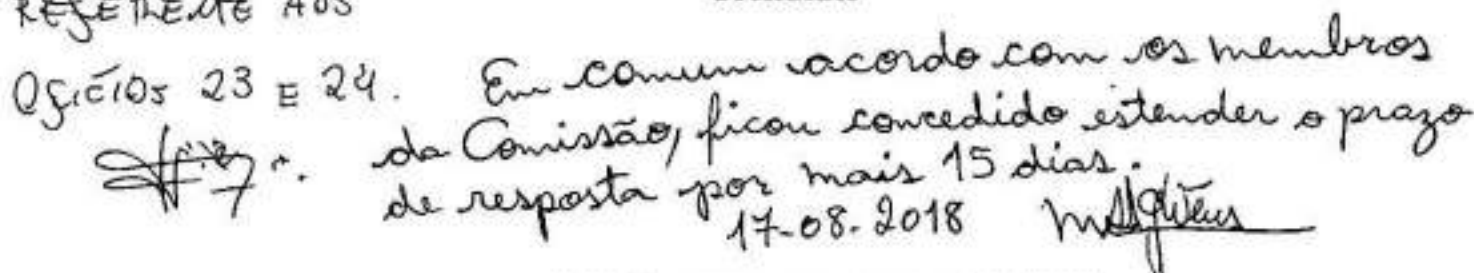 REFERENTE AOS
OFÍCIOS 23 E 24.
Em comum acordo com os membros
da Comissão, ficou concedido estender o prazo
de resposta por mais 15 dias.
17-08-2018